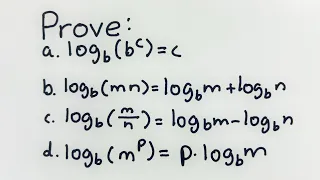 Prove:
a. log_b(b^c)=c
b. log_b(mn)=log_b m+log_b n
c. log_b(m/n)=log_b m-log_b n
d. log_b(m^p)= p·log_b m